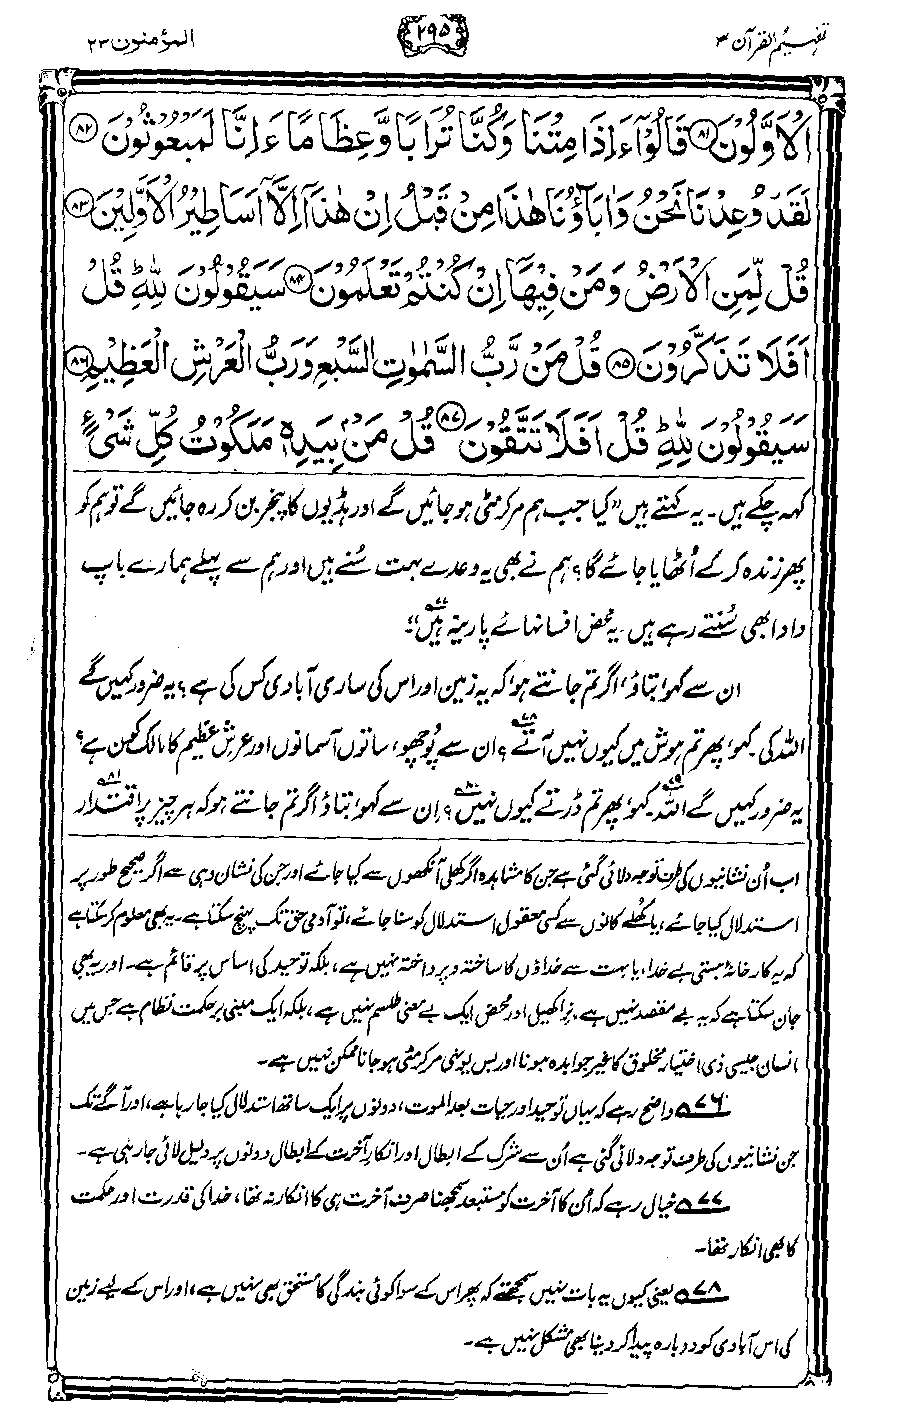 تفہیم القرآن ۳
۲۹۵
المؤمنون ۲۳
الْاَوَّلُوْنَ ﴿۸۱﴾ قَالُوْٓا ءَاِذَا مِتْنَا وَكُنَّا تُرَابًا وَّعِظَامًا ءَاِنَّا لَمَبْعُوْثُوْنَ ﴿۸۲﴾
لَقَدْ وُعِدْنَا نَحْنُ وَاٰبَآؤُنَا هٰذَا مِنْ قَبْلُ اِنْ هٰذَآ اِلَّآ اَسَاطِيْرُ الْاَوَّلِيْنَ ﴿۸۳﴾
قُلْ لِّمَنِ الْاَرْضُ وَمَنْ فِيْهَآ اِنْ كُنْتُمْ تَعْلَمُوْنَ ﴿۸۴﴾ سَيَقُوْلُوْنَ لِلّٰهِ ؕ قُلْ
اَفَلَا تَذَكَّرُوْنَ ﴿۸۵﴾ قُلْ مَنْ رَّبُّ السَّمٰوٰتِ السَّبْعِ وَرَبُّ الْعَرْشِ الْعَظِيْمِ ﴿۸۶﴾
سَيَقُوْلُوْنَ لِلّٰهِ ؕ قُلْ اَفَلَا تَتَّقُوْنَ ﴿۸۷﴾ قُلْ مَنْۢ بِيَدِهٖ مَلَكُوْتُ كُلِّ شَيْءٍ
کہہ چکے ہیں۔ یہ کہتے ہیں ”کیا جب ہم مر کر مٹی ہو جائیں گے اور ہڈیوں کا پنجر بن کر رہ جائیں گے تو ہم کو
پھر زندہ کر کے اُٹھایا جائے گا؟ ہم نے بھی یہ وعدے بہت سُنے ہیں اور ہم سے پہلے ہمارے باپ
دادا بھی سُنتے رہے ہیں۔ یہ محض افسانہائے پارینہ ہیں۷۷“۔
ان سے کہو، بتاؤ، اگر تم جانتے ہو، کہ یہ زمین اور اس کی ساری آبادی کس کی ہے؟ یہ ضرور کہیں گے
اللہ کی۔ کہو، پھر تم ہوش میں کیوں نہیں آتے۷۸؟ ان سے پُوچھو، ساتوں آسمانوں اور عرشِ عظیم کا مالک کون ہے؟
یہ ضرور کہیں گے اللہ۷۹۔ کہو، پھر تم ڈرتے کیوں نہیں۸۰؟ اِن سے کہو، بتاؤ اگر تم جانتے ہو کہ ہر چیز پر اقتدار۸۱
اب اُن نشانیوں کی طرف توجہ دلائی گئی ہے جن کا مشاہدہ اگر کھلی آنکھوں سے کیا جائے اور جن کی نشان دہی سے اگر صحیح طور پر
استدلال کیا جائے، یا کھُلے کانوں سے کسی معقول استدلال کو سنا جائے، تو آدمی حق تک پہنچ سکتا ہے۔ یہ بھی معلوم کر سکتا ہے
کہ یہ کارخانۂ ہستی بے خدا، یا بہت سے خداؤں کا ساختہ و پرداختہ نہیں ہے، بلکہ توحید کی اساس پر قائم ہے۔ اور یہ بھی
جان سکتا ہے کہ یہ بے مقصد نہیں ہے، نرا کھیل اور محض ایک بے معنی طلسم نہیں ہے، بلکہ ایک مبنی بر حکمت نظام ہے جس میں
انسان جیسی ذی اختیار مخلوق کا غیر جواب دہ ہونا اور بس یونہی مر کر مٹی ہو جانا ممکن نہیں ہے۔
۷۶ واضح رہے کہ یہاں توحید اور حیات بعد الموت، دونوں پر ایک ساتھ استدلال کیا جا رہا ہے، اور آگے تک
جن نشانیوں کی طرف توجہ دلائی گئی ہے اُن سے شرک کے ابطال اور انکارِ آخرت کے ابطال دونوں پر دلیل لائی جا رہی ہے۔
۷۷ خیال رہے کہ اُن کا آخرت کو مستبعد سمجھنا صرف آخرت ہی کا انکار نہ تھا، خدا کی قدرت اور حکمت
کا بھی انکار تھا۔
۷۸ یعنی کیوں یہ بات نہیں سمجھتے کہ پھر اس کے سوا کوئی بندگی کا مستحق بھی نہیں ہے، اور اس کے لیے زمین
کی اس آبادی کو دوبارہ پیدا کر دینا بھی مشکل نہیں ہے۔